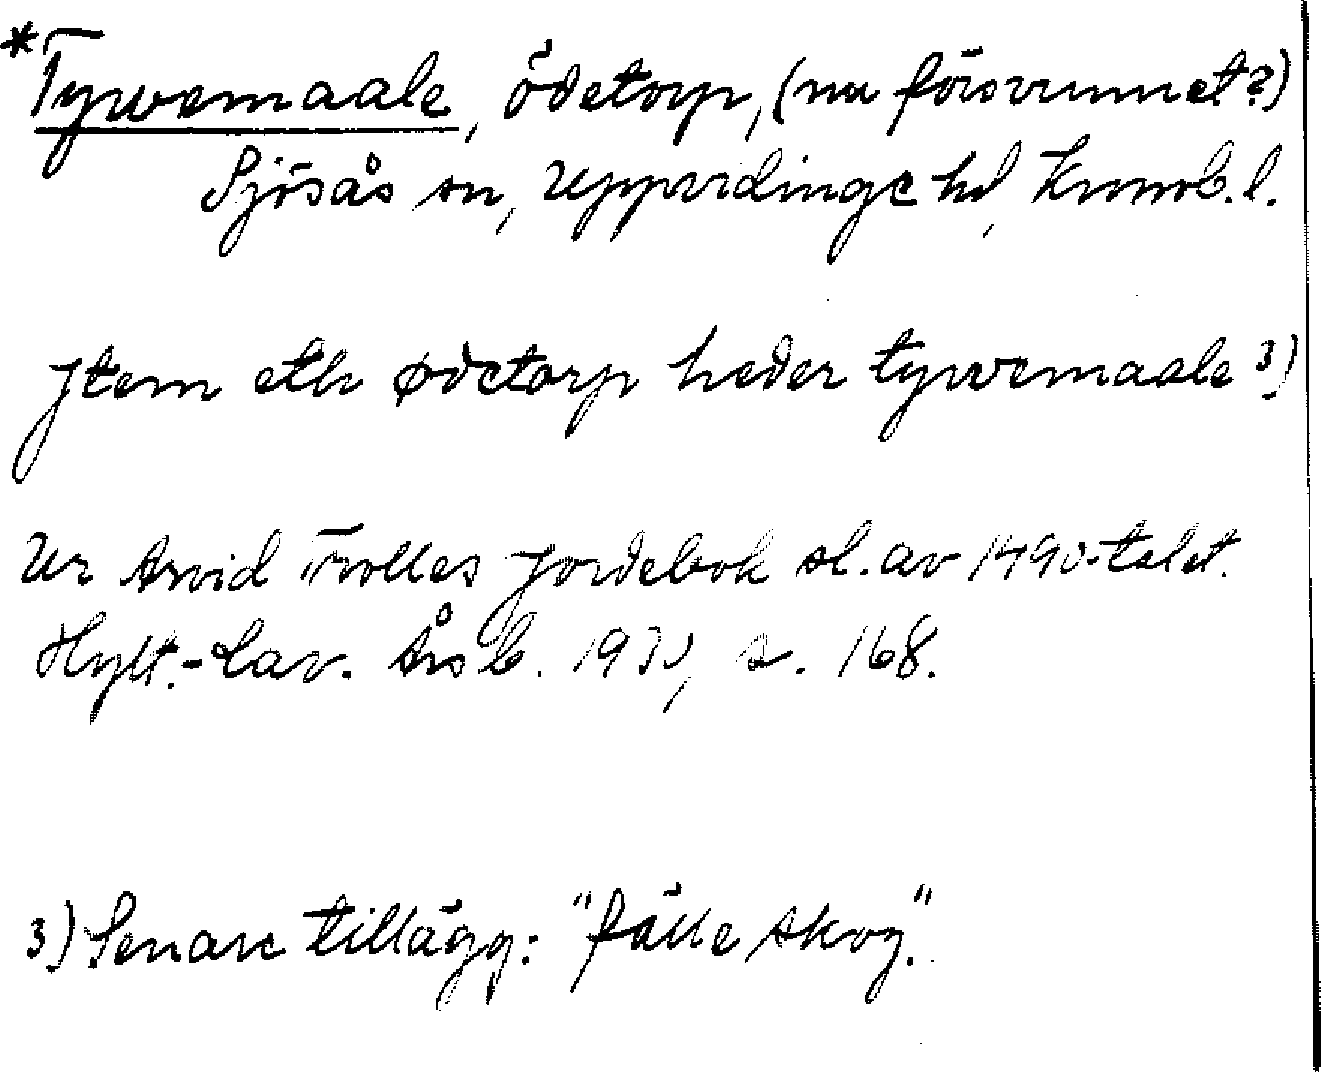 *Tywemaale, ödetorp, (nu försvunnet?)
Sjösås sn, Uppvidinge hd, Kronob. l.
Jtem eth ødetorp heder tywemaale 3)
Ur Arvid Trolles jordebok sl. av 1490-talet.
Hylt.-Cav. Årsb. 1930, s. 168.
3) Senare tillägg: "fälle skog".